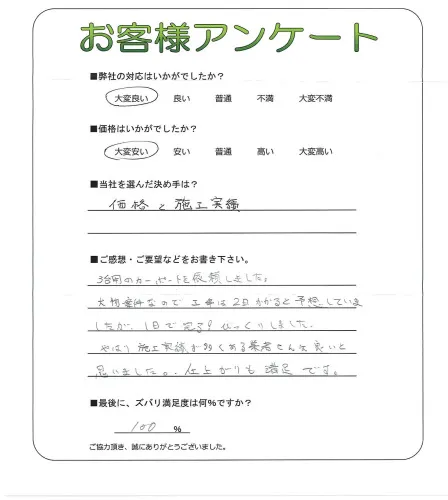 お客様アンケート
■弊社の対応はいかがでしたか？
大変良い 良い 普通 不満 大変不満
■価格はいかがでしたか？
大変安い 安い 普通 高い 大変高い
■当社を選んだ決め手は？
価格と施工実績
■ご感想・ご要望などをお書き下さい。
3台用のカーポートを依頼しました。
大物案件なので工事は2日かかると予想していま
したが、1日で完了！びっくりしました。
やはり施工実績が多くある業者さんは良いと
思いました。仕上がりも満足です。
■最後に、ズバリ満足度は何％ですか？
100 %
ご協力頂き、誠にありがとうございました。